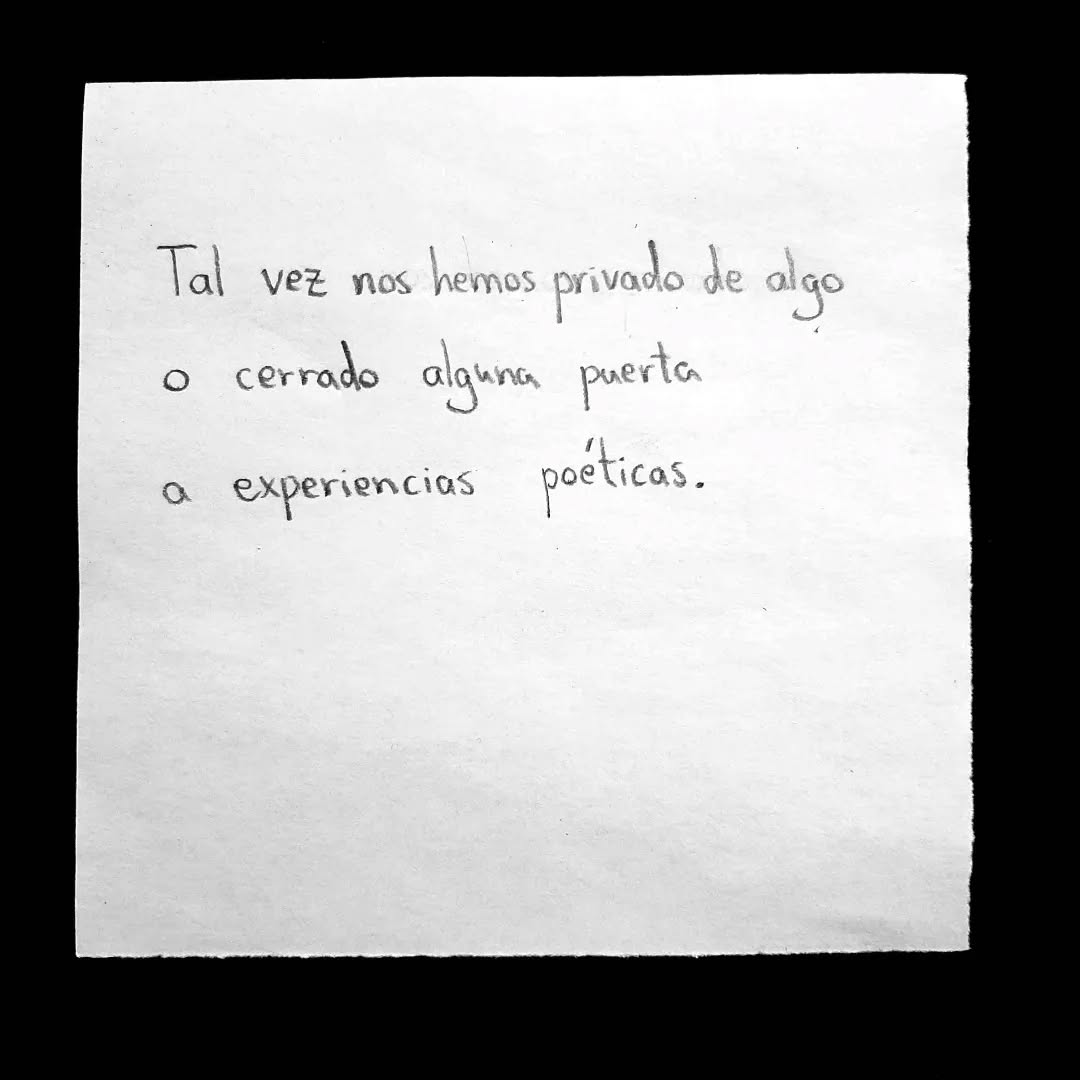 Tal vez nos hemos privado de algo
o cerrado alguna puerta
a experiencias poéticas.